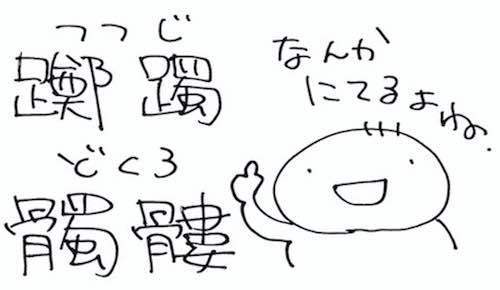 つつじ
躑躅
どくろ
髑髏
なんか
にてるよね。